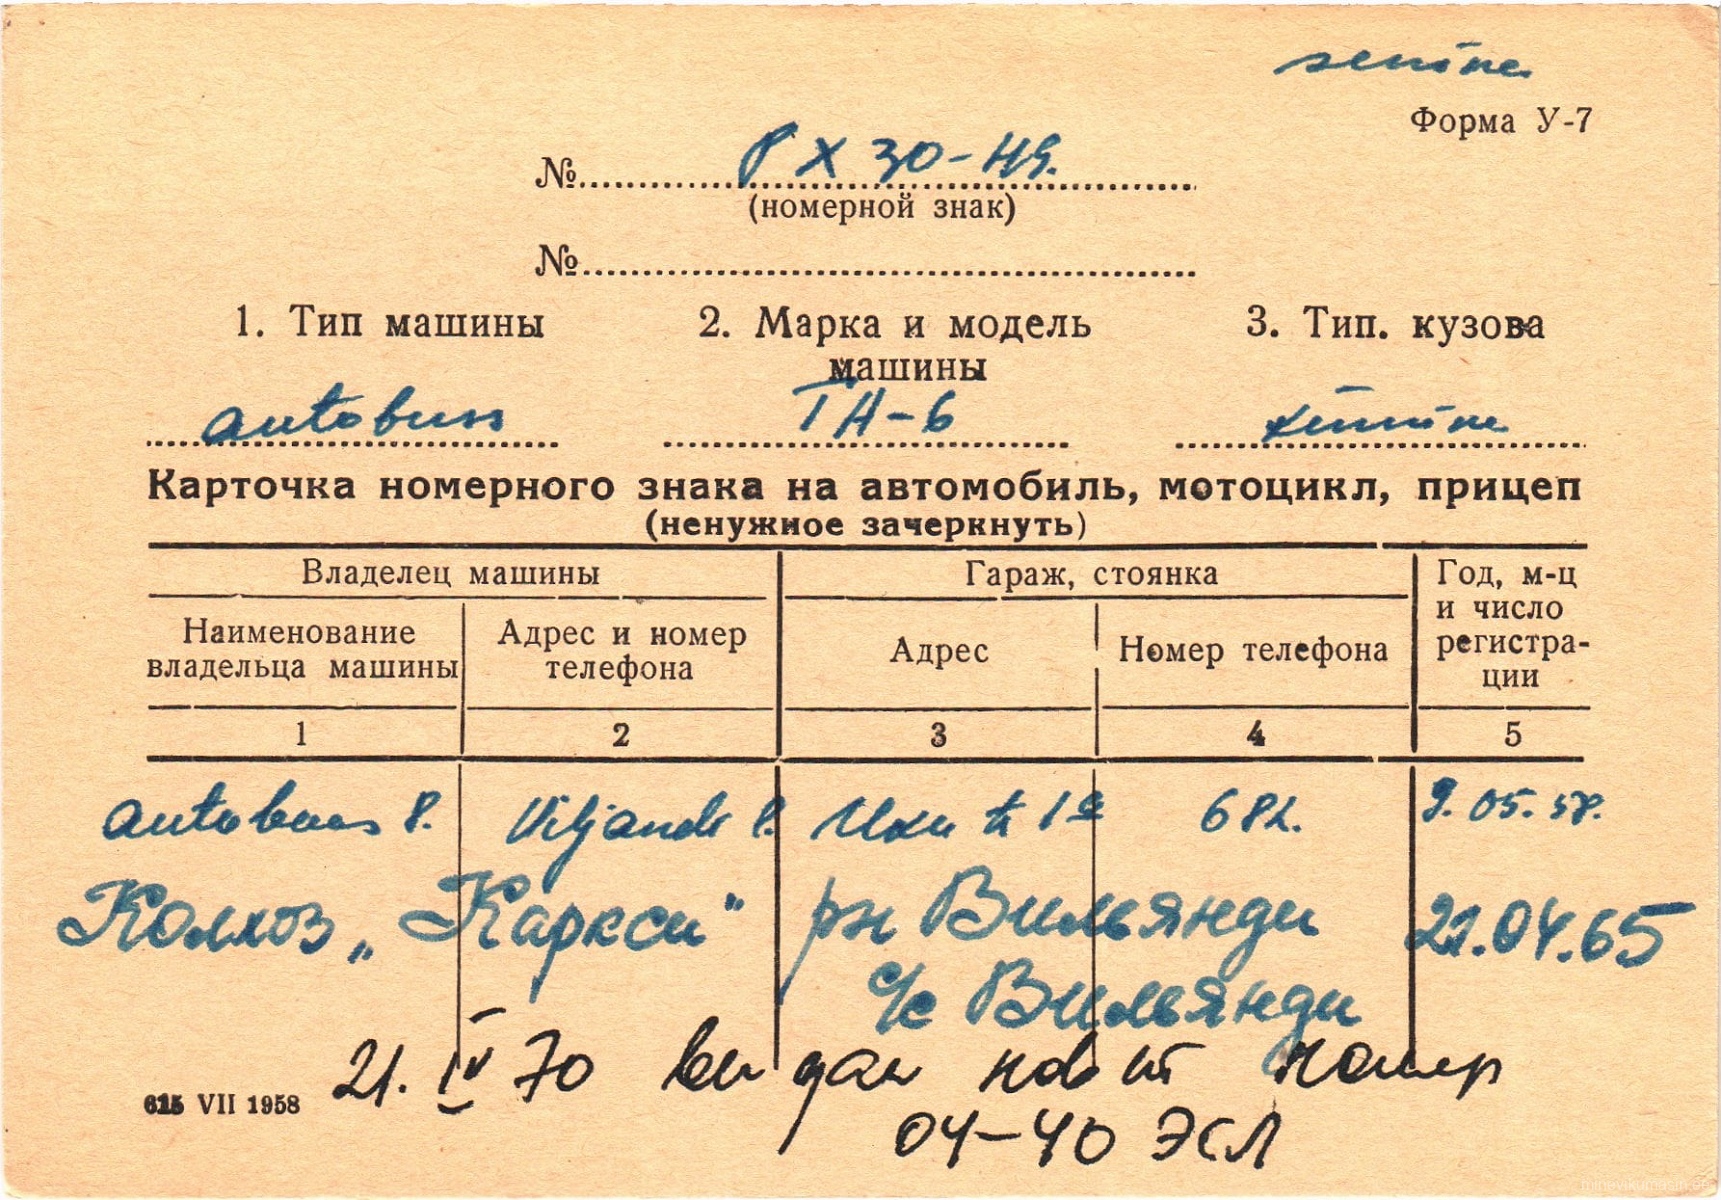 sinine
Форма У-7
№ РХ 30-49.
(номерной знак)
№
1. Тип машины 2. Марка и модель машины 3. Тип. кузова
autobuss ТА-6 sinine
Карточка номерного знака на автомобиль, мотоцикл, прицеп
(ненужное зачеркнуть)
Владелец машины Гараж, стоянка Год, м-ц и число регистра-ции
Наименование владельца машины Адрес и номер телефона Адрес Номер телефона
1 2 3 4 5
autobaas 8. Viljandi Uku tn 1a 682. 9.05.58.
Колхоз „Каркси" рн Вильянди 21.04.65
с/с Вильянди
21. IV 70 выдан новый номер
04-40 ЭСЛ
615 VII 1958